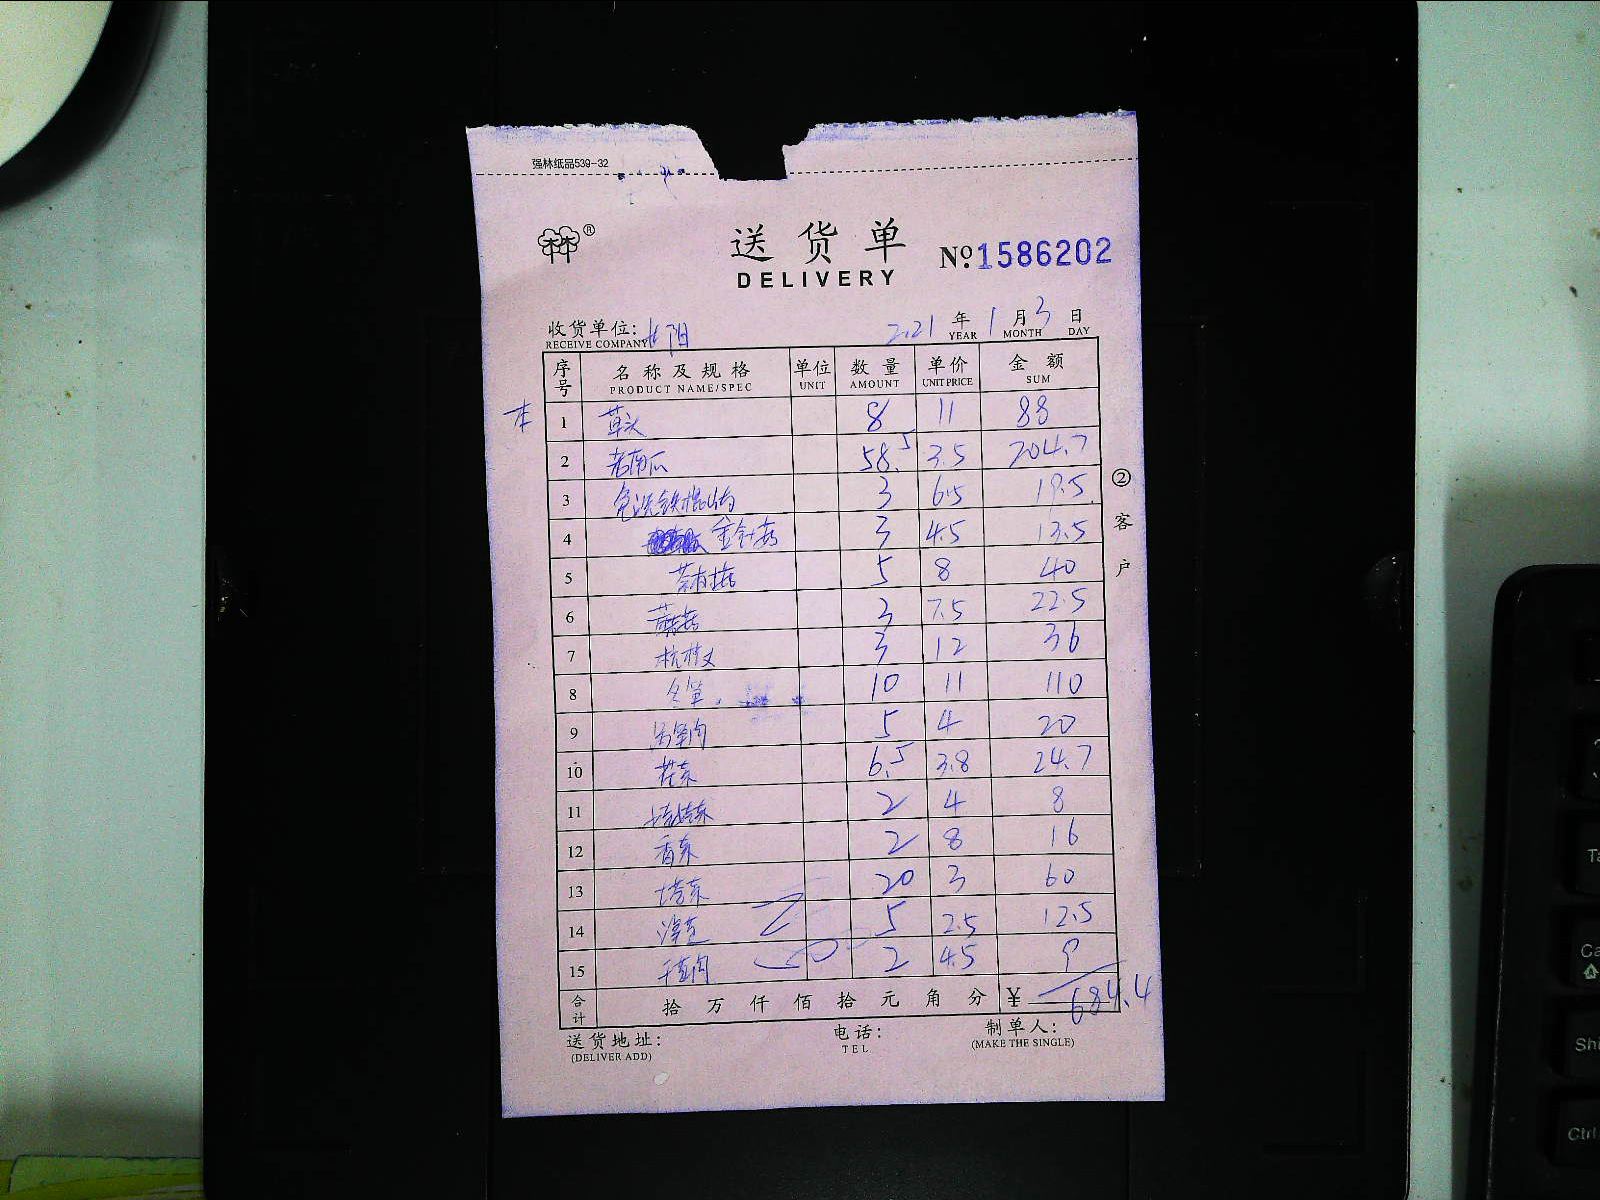 强林纸品539-32
林林®
送货单
DELIVERY
No.1586202
收货单位: 阳 2021年1月3日
RECEIVE COMPANY YEAR MONTH DAY
序号 名称及规格 单位 数量 单价 金额
PRODUCT NAME/SPEC UNIT AMOUNT UNIT PRICE SUM
本 1 草头 8 11 88
2 老南瓜 58.5 3.5 204.7
3 免洗铁棍山药 3 6.5 19.5
4 金针菇 3 4.5 13.5
5 茶树菇 5 8 40
6 蘑菇 3 7.5 22.5
7 杭椒 3 12 36
8 冬笋 10 11 110
9 5 4 20
10 6.5 3.8 24.7
11 2 4 8
12 香菜 2 8 16
13 塔菜 20 3 60
14 5 2.5 12.5
15 2 4.5 9
合计 拾万仟佰拾元角分 ¥684.4
送货地址: 电话: 制单人:
(DELIVER ADD) TEL (MAKE THE SINGLE)
②客户